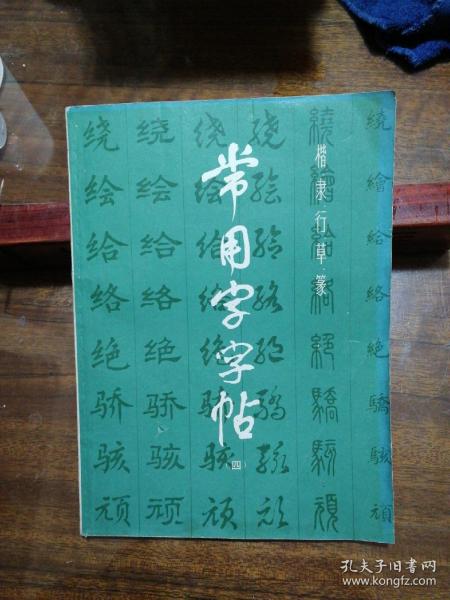 常用字字帖
(四)
楷·隶·行·草·篆
绕 绕 绕 绕 繞 繞
绘 绘 绘 绘 繪 繪
给 给 给 给 給 給
络 络 络 络 絡 絡
绝 绝 绝 绝 絕 絕
骄 骄 骄 驕 驕 驕
骇 骇 骇 骇 駭 駭
顽 顽 顽 顽 頑 頑
孔夫子旧书网
www.kongfz.com